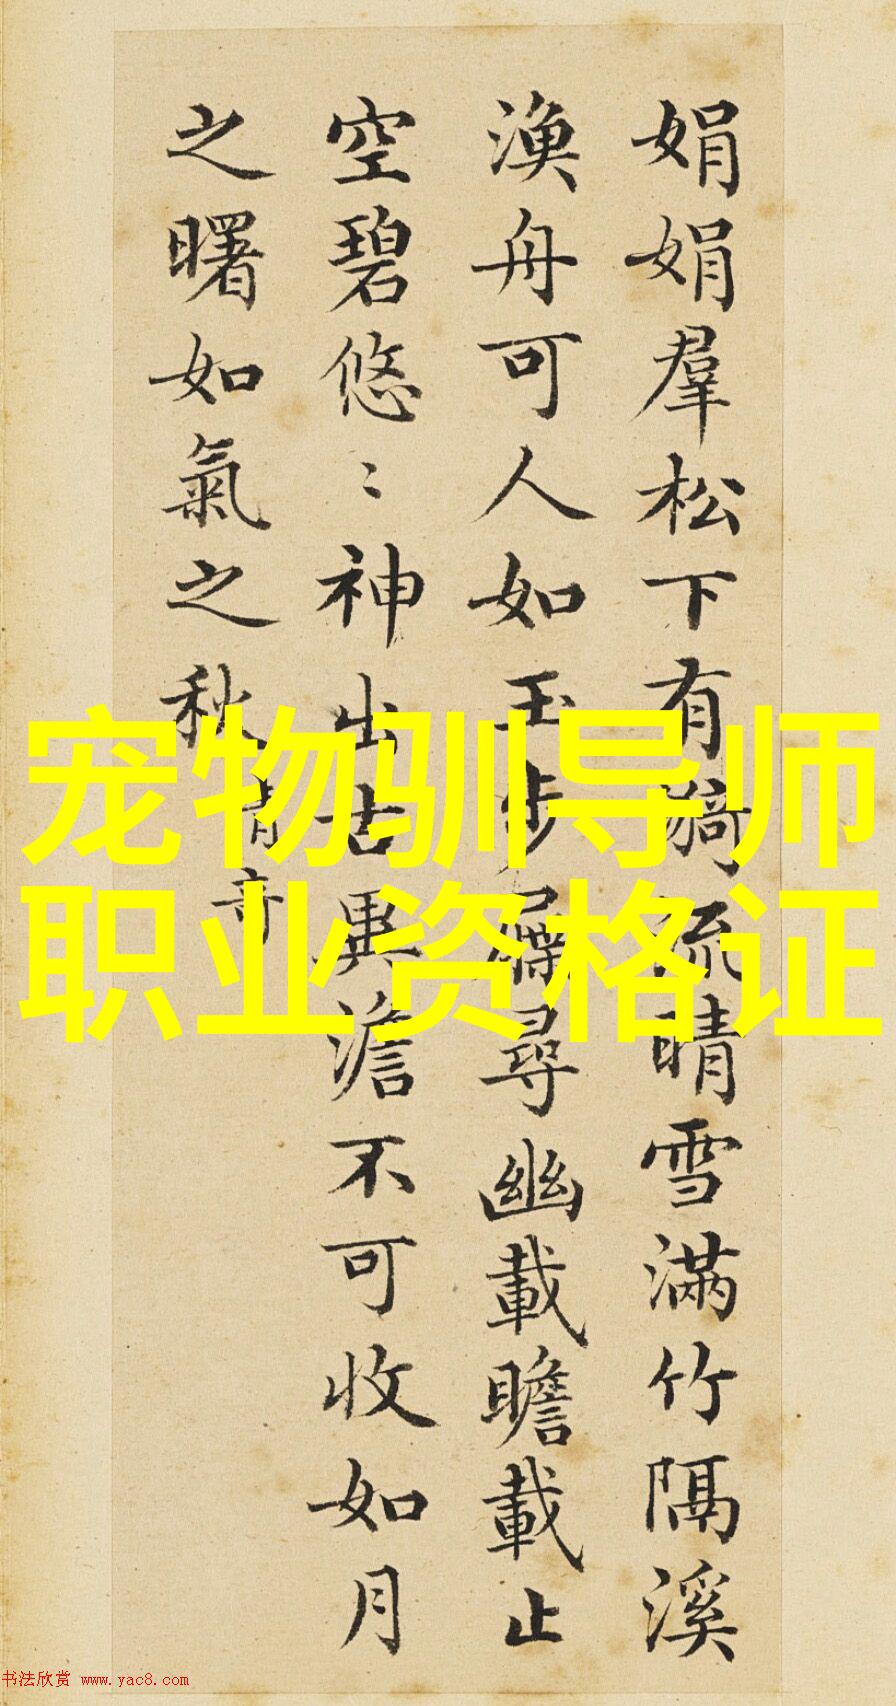 娟娟羣松下有漪流晴雪滿竹隔溪
漁舟可人如玉步屧尋幽載瞻載止
空碧悠〻神出古異澹不可收如月
之曙如氣之秋 清奇
宠物驯导师
职业资格证
书法欣赏 www.yac8.com